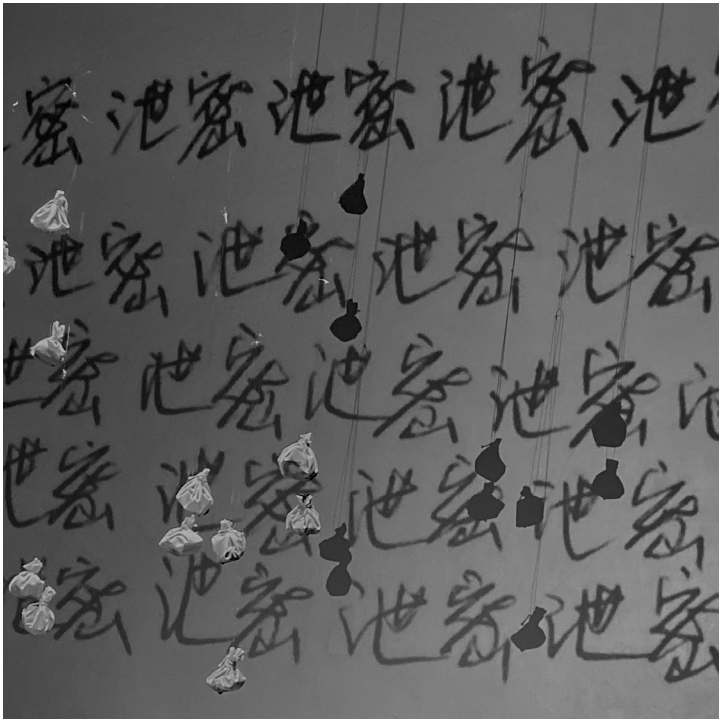 密 泄密 泄密 泄密 泄
泄密 泄密 泄密 泄密
泄密 泄密 泄密 泄密 泄
泄密 泄密 泄密 泄密
泄密 泄密 泄密 泄密